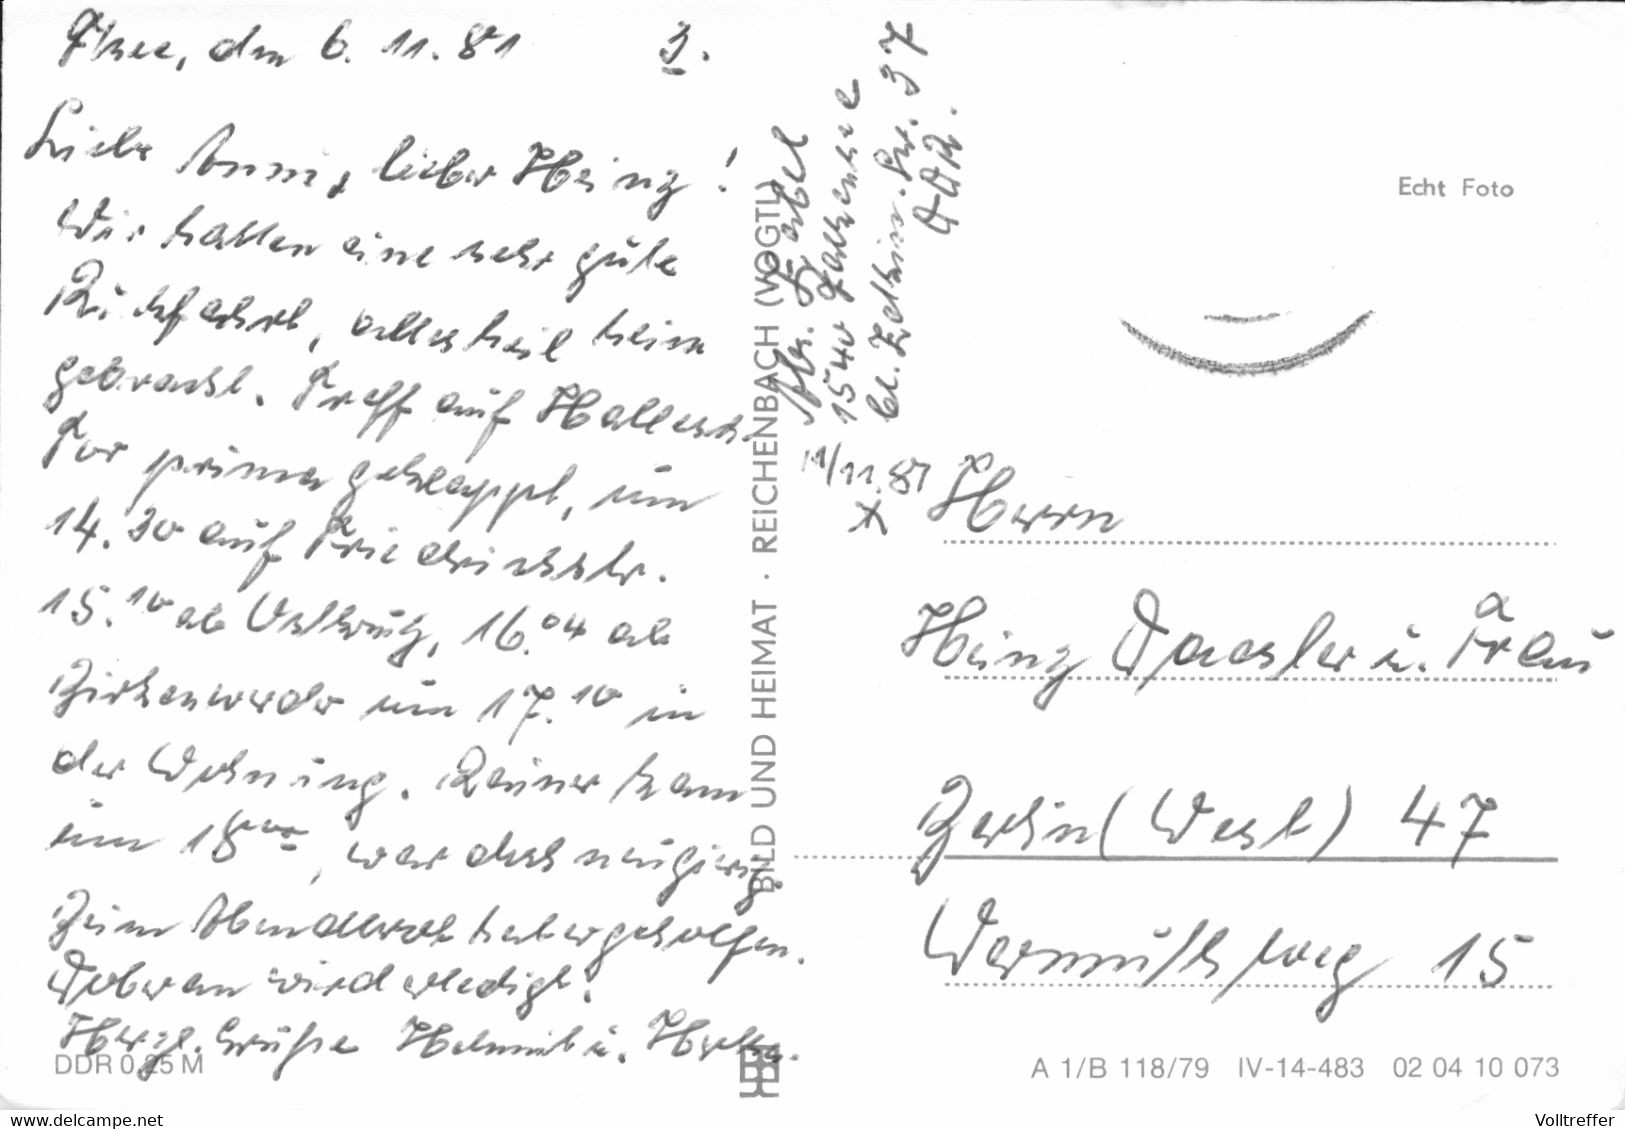 Fksee, den 6. 11. 81 3.
Liebe Anni, lieber Heinz!
Wir hatten eine sehr gute
Rückfahrt, alles heil heim
gebracht. Treff auf Hallesch.
Tor prima geklappt, um
14.30 auf Friedrichstr.
15.10 ab Ostkreuz, 16.04 ab
Birkenwerder um 17.10 in
der Wohnung. Rainer kam
um 18.00, war doch neugierig.
Beim Abendbrot hat er geholfen.
Doberan wird erledigt.
Herzl. Grüße Helmut u.
DDR 0,25 M
BILD UND HEIMAT · REICHENBACH (VOGTL)
1540 Falkensee
37
DDR.
11/11.81
x
Echt Foto
Herrn
Heinz Daesler u. Frau
Berlin (West) 47
Wermuthweg 15
A 1/B 118/79 IV-14-483 02 04 10 073
hier + heute
Volltreffer